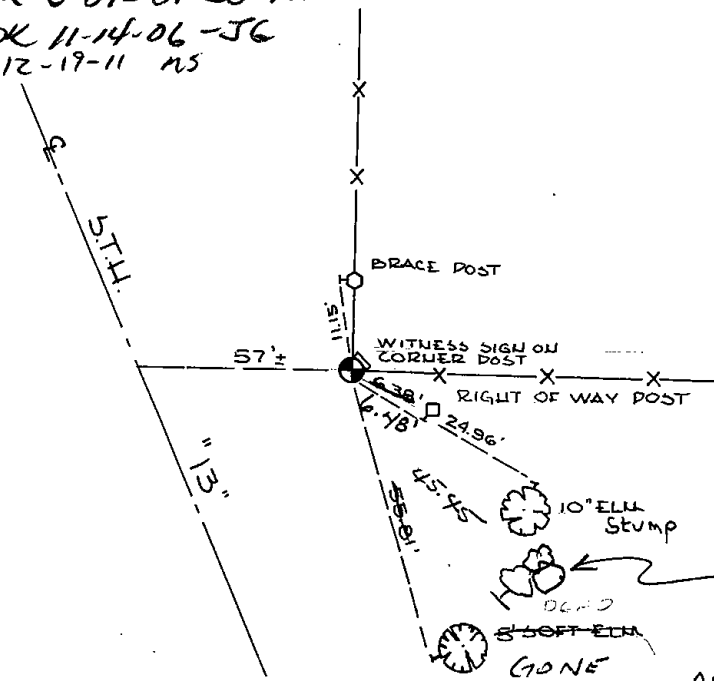 OK 11-14-06 -JG
12-19-11 ns
S.T.H.
"13"
BRACE POST
11.15'
WITNESS SIGN ON
CORNER POST
57'±
6.38'
RIGHT OF WAY POST
6.48'
24.96'
45.45
55.81'
10" ELM
Stump
DEAD
8" SOFT ELM
GONE